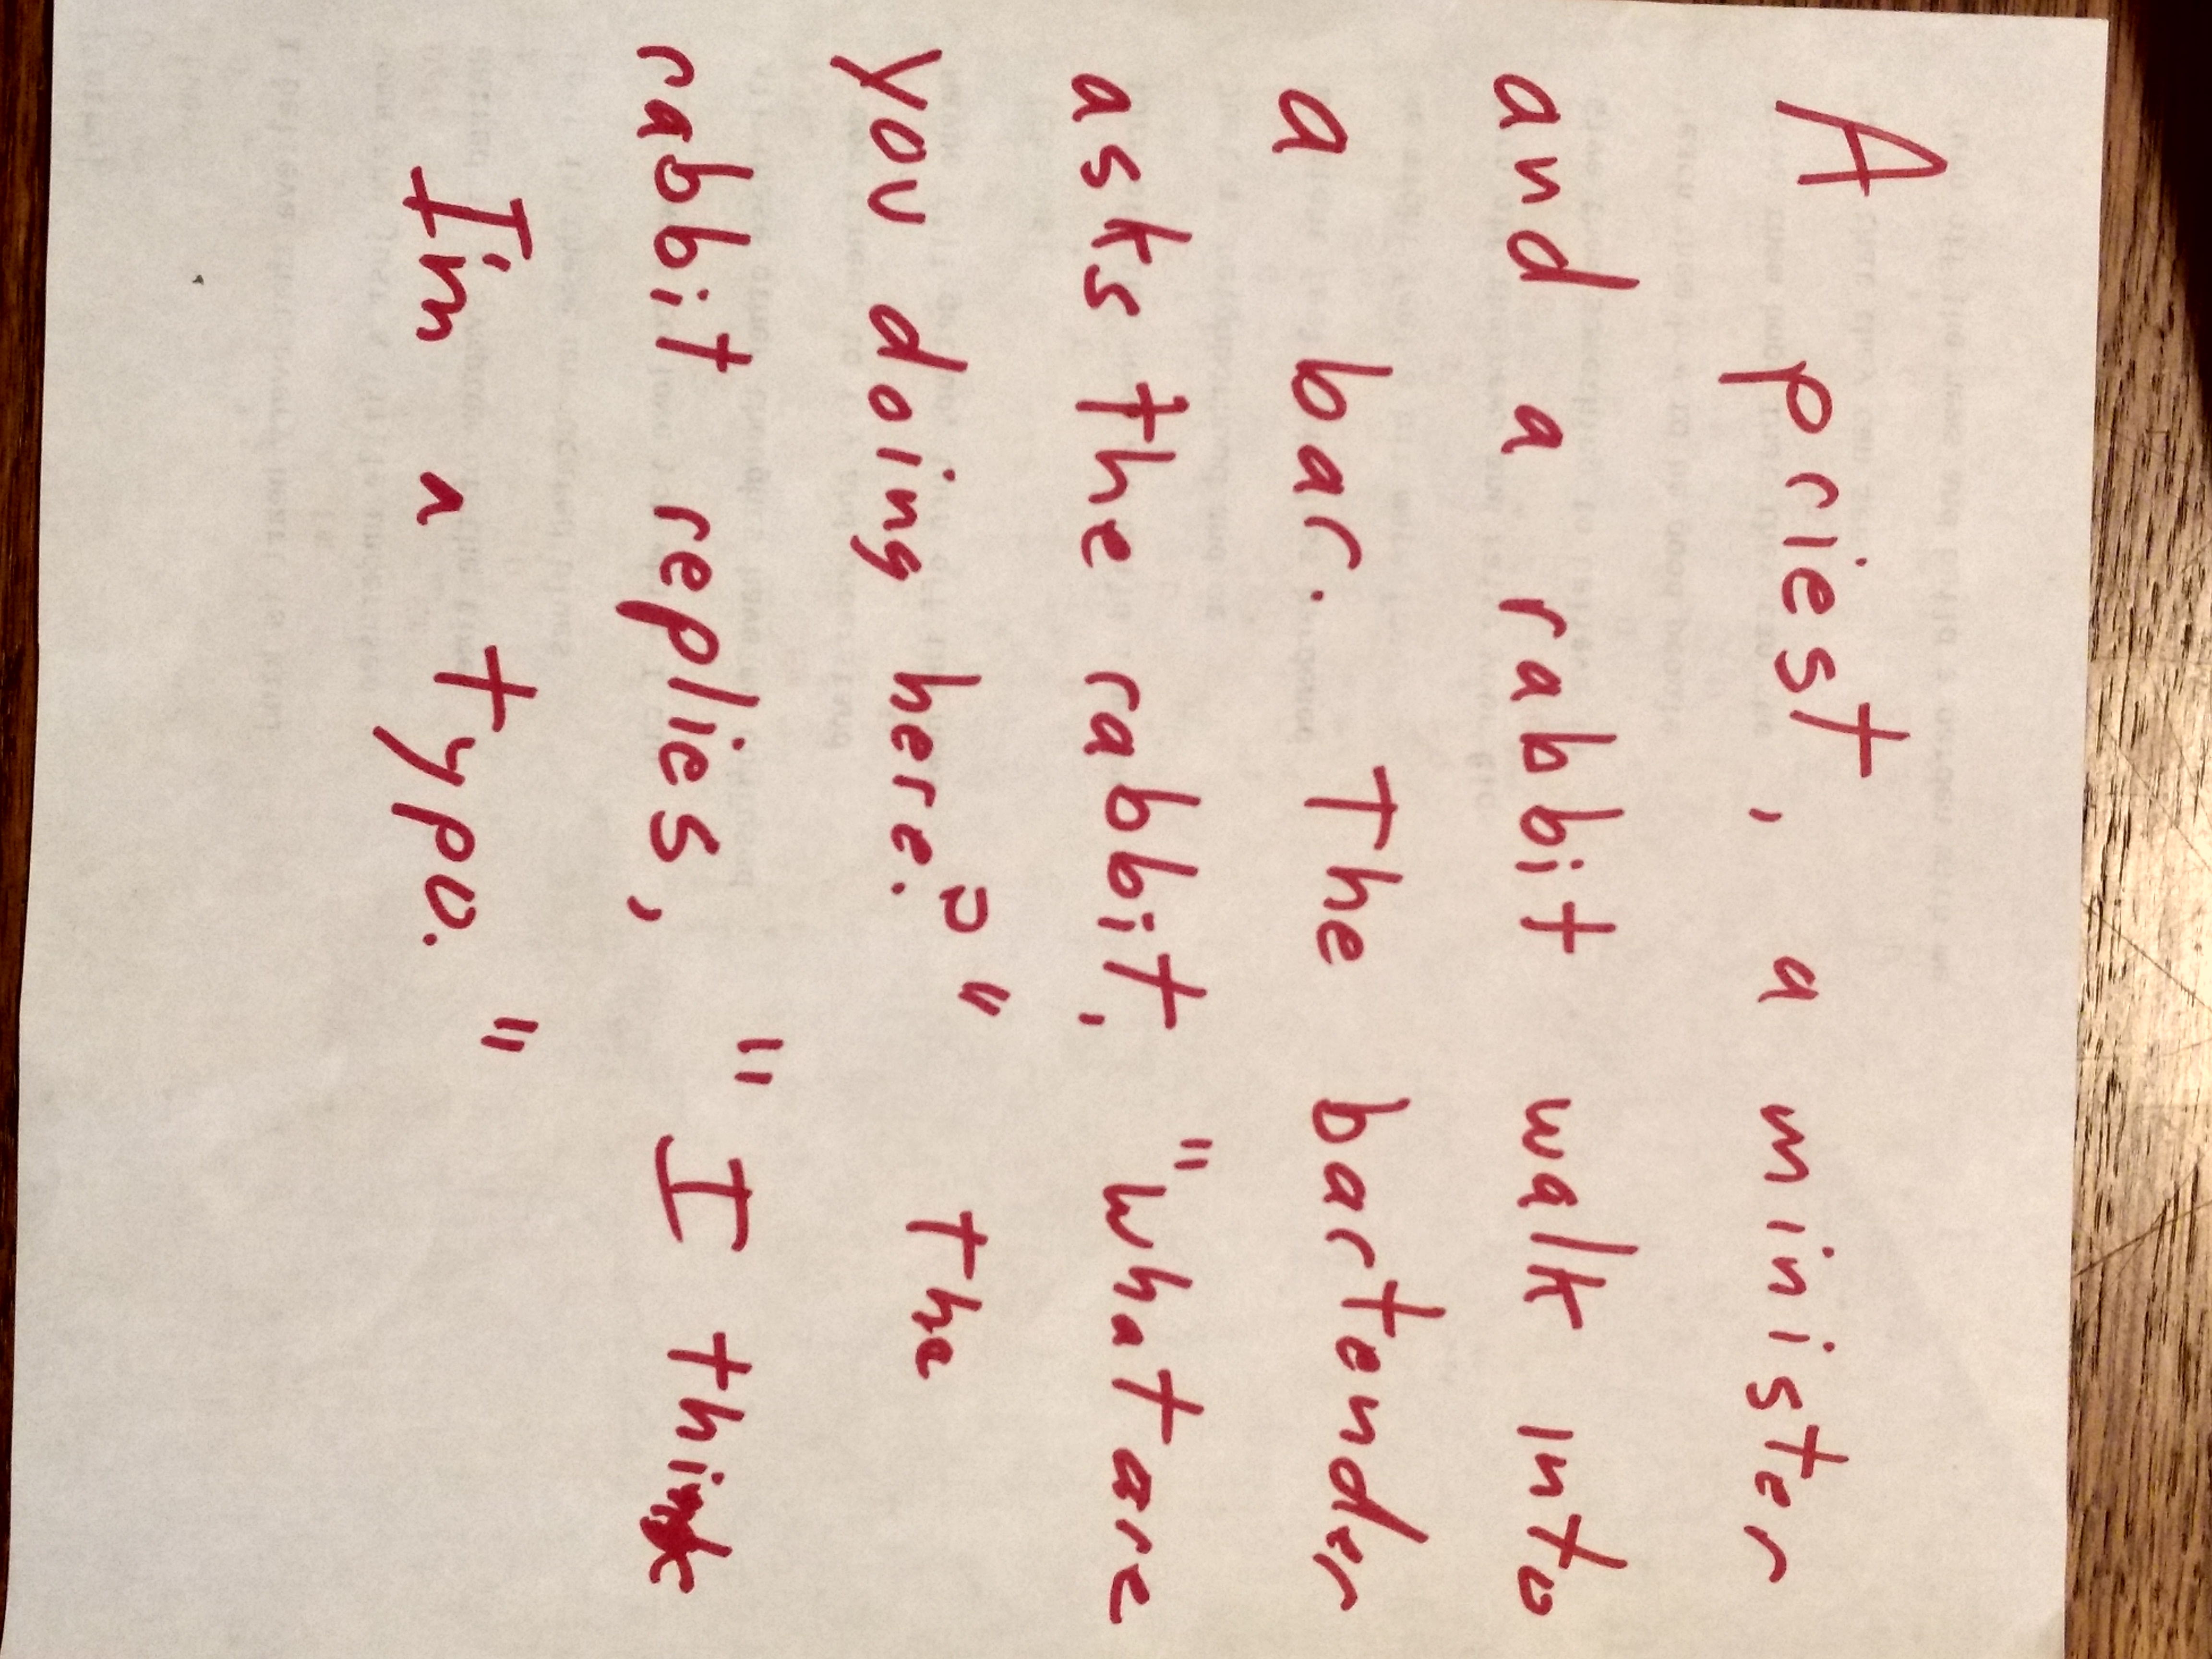 A priest, a minister
and a rabbit walk into
a bar. The bartender
asks the rabbit, "what are
you doing here?" The
rabbit replies, "I think
I'm a typo."